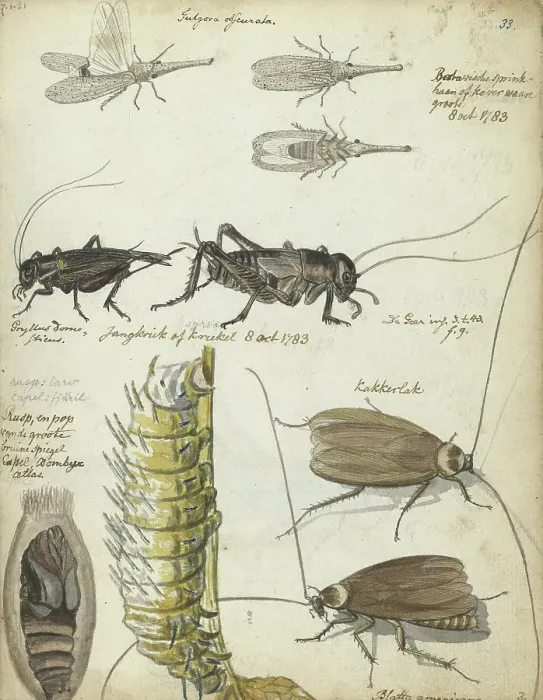 7-1-21
Fulgora obscurata.
33.
Bataviasche sprink-
haan of kever ware
groote
8 oct 1783
Gryllus domes-
ticus.
Jangkrik of Kreekel 8 oct 1783
De Geer inf. 3. t. 43.
f. 9.
rusp: larv
capel: fjäril
Rusp, en pop
van de groote
bruine spiegel
Capel, Bombyx
atlas.
Kakkerlak
Blatta americana